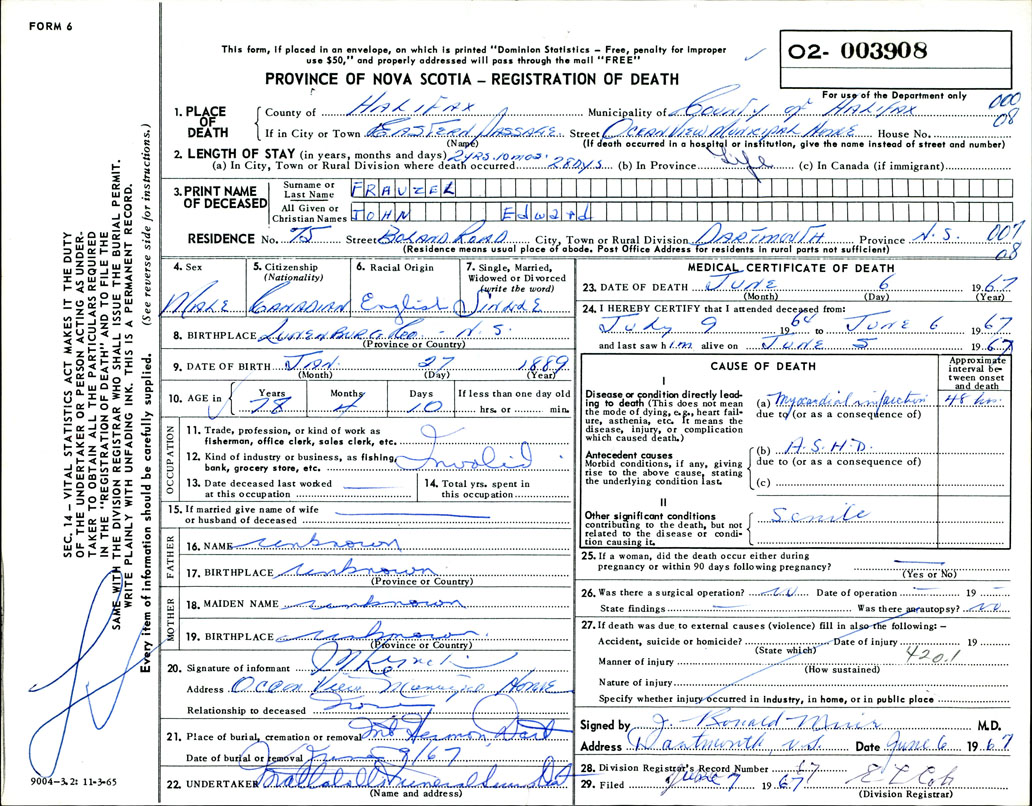 FORM 6
This form, if placed in an envelope, on which is printed "Dominion Statistics – Free, penalty for improper
use $50," and properly addressed will pass through the mail "FREE"
PROVINCE OF NOVA SCOTIA – REGISTRATION OF DEATH
02- 003908
For use of the Department only
000
08
1. PLACE OF DEATH
County of HALIFAX Municipality of COUNTY OF HALIFAX
If in City or Town EASTERN PASSAGE Street OCEAN VIEW MUNICIPAL HOME House No.
(Name) (If death occurred in a hospital or institution, give the name instead of street and number)
2. LENGTH OF STAY (in years, months and days) 2 YRS. 10 MOS.
(a) In City, Town or Rural Division where death occurred 28 DYS. (b) In Province Life (c) In Canada (if immigrant)
3. PRINT NAME OF DECEASED
Surname or Last Name FRAUZEL
All Given or Christian Names JOHN Edward
RESIDENCE No. 75 Street BOLAND ROAD City, Town or Rural Division DARTMOUTH Province N.S. 007
(Residence means usual place of abode. Post Office Address for residents in rural parts not sufficient) 08
4. Sex MALE
5. Citizenship (Nationality) CANADIAN
6. Racial Origin English
7. Single, Married, Widowed or Divorced (write the word) SINGLE
8. BIRTHPLACE LUNENBURG CO. - N.S.
(Province or Country)
9. DATE OF BIRTH JAN. 27 1889
(Month) (Day) (Year)
10. AGE in Years 78 Months 4 Days 10 If less than one day old
hrs. or min.
OCCUPATION
11. Trade, profession, or kind of work as
fisherman, office clerk, sales clerk, etc.
12. Kind of industry or business, as fishing,
bank, grocery store, etc. Invalid
13. Date deceased last worked
at this occupation
14. Total yrs. spent in
this occupation
15. If married give name of wife
or husband of deceased
FATHER
16. NAME unknown
17. BIRTHPLACE unknown
(Province or Country)
MOTHER
18. MAIDEN NAME unknown
19. BIRTHPLACE unknown
(Province or Country)
20. Signature of informant
Address Ocean View Municipal Home
Relationship to deceased None
21. Place of burial, cremation or removal Mt Hermon Dart
Date of burial or removal June 9/67
22. UNDERTAKER Mattatall Funeral
(Name and address)
9004-3.2: 11-3-65
SEC. 14 – VITAL STATISTICS ACT MAKES IT THE DUTY
OF THE UNDERTAKER OR PERSON ACTING AS UNDER-
TAKER TO OBTAIN ALL THE PARTICULARS REQUIRED
IN THE "REGISTRATION OF DEATH" AND TO FILE THE
SAME WITH THE DIVISION REGISTRAR WHO SHALL ISSUE THE BURIAL PERMIT.
WRITE PLAINLY WITH UNFADING INK. THIS IS A PERMANENT RECORD.
Every item of information should be carefully supplied. (See reverse side for instructions.)
MEDICAL CERTIFICATE OF DEATH
23. DATE OF DEATH JUNE 6 1967
(Month) (Day) (Year)
24. I HEREBY CERTIFY that I attended deceased from:
July 9 1964 to JUNE 6 1967
and last saw him alive on JUNE 5 1967
CAUSE OF DEATH
Approximate interval between onset and death
I
Disease or condition directly lead-
ing to death (This does not mean
the mode of dying, e.g., heart fail-
ure, asthenia, etc. It means the
disease, injury, or complication
which caused death.)
(a) Myocardial infarction 48 hrs.
due to (or as a consequence of)
Antecedent causes
Morbid conditions, if any, giving
rise to the above cause, stating
the underlying condition last.
(b) A.S.H.D.
due to (or as a consequence of)
(c)
II
Other significant conditions
contributing to the death, but not
related to the disease or condi-
tion causing it.
Senile
25. If a woman, did the death occur either during
pregnancy or within 90 days following pregnancy?
(Yes or No)
26. Was there a surgical operation? no Date of operation – 19 –
State findings – Was there an autopsy? no
27. If death was due to external causes (violence) fill in also the following: –
Accident, suicide or homicide? Date of injury 19
(State which)
Manner of injury 420.1
(How sustained)
Nature of injury
Specify whether injury occurred in Industry, in home, or in public place
Signed by J. Ronald Muir M.D.
Address Dartmouth, N.S. Date June 6 1967
28. Division Registrar's Record Number 17
29. Filed June 7 1967
(Division Registrar)